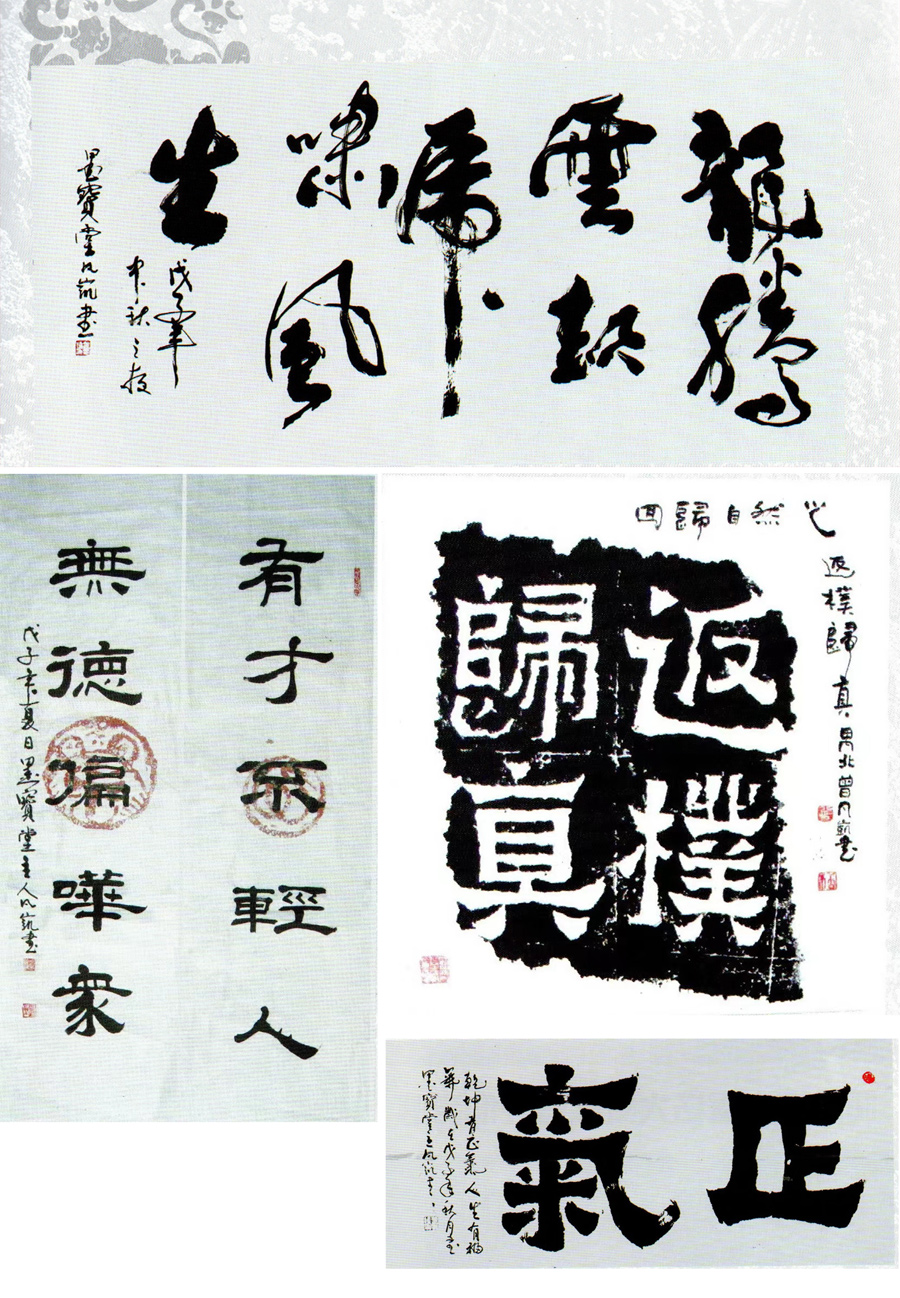 龍騰
雲起
虎
嘯風
生
戊子年
中秋之夜
墨寶堂凡書
有才不輕人
無德偏嘩衆
戊子夏日墨寶堂主人凡書
回歸自然也
返樸歸真禺北曾凡書
返樸
歸真
正氣
乾坤有正氣人生有
歲在戊子年秋月
墨寶堂主凡書